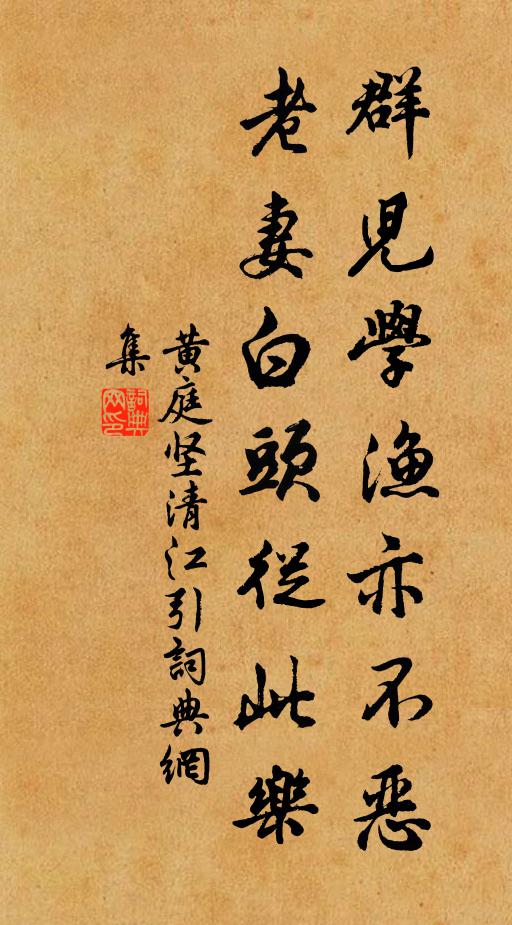 群児學漁亦不惡
老妻白頭從此樂
黄庭坚清江引詞典網
集
詞典
网印